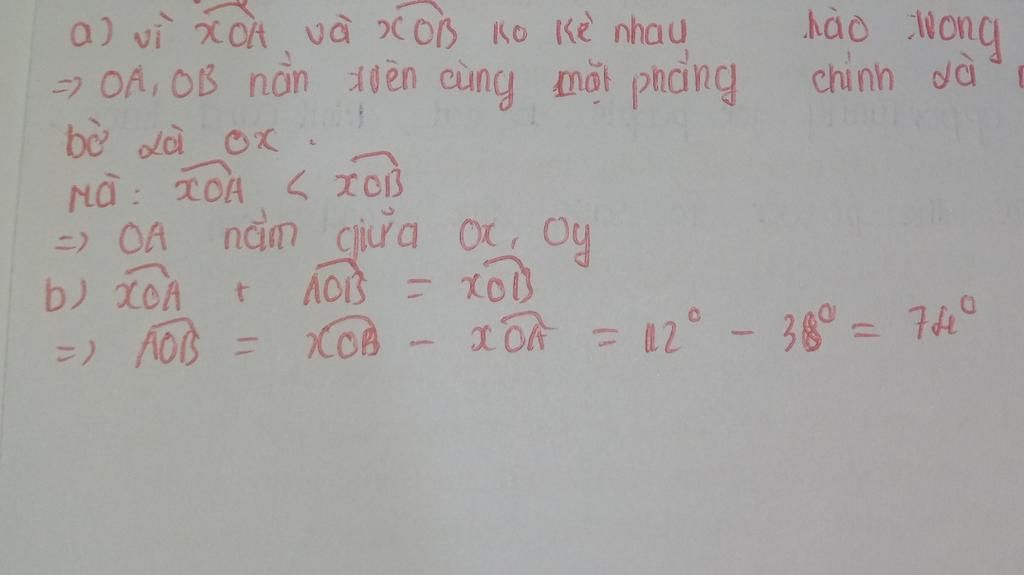 a) vì xOA và xOB ko kè nhau hào trong
=> OA, OB nằn trên cùng mặt phẳng chính là
bờ là Ox.
Mà: xOA < xOB
=> OA nằm giữa Ox, Oy
b) xOA + AOB = xOB
=> AOB = xOB - xOA = 112° - 38° = 74°